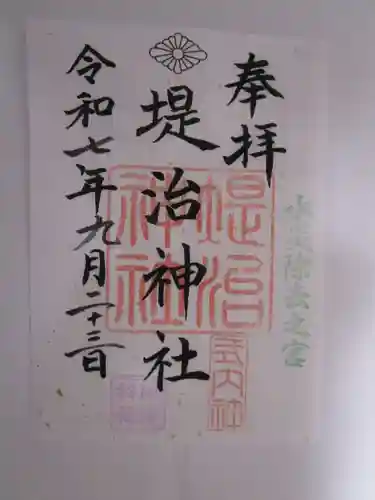 奉拝
堤治神社
令和七年九月二十三日
堤治
神社
式内社